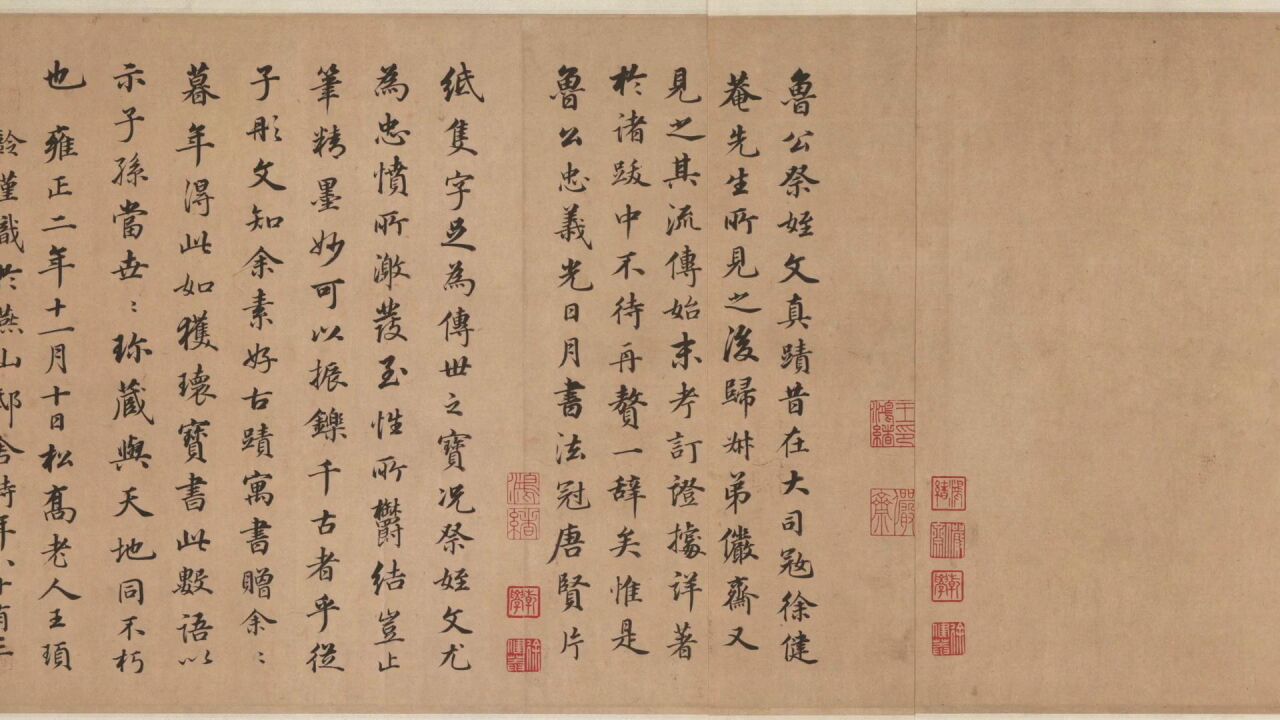 魯公祭姪文真蹟昔在大司寇徐健
菴先生所見之後歸姊弟儼齋又
見之其流傳始末考訂證據詳著
於諸跋中不待再贅一辭矣惟是
魯公忠義光日月書法冠唐賢片
紙隻字足為傳世之寶況祭姪文尤
為忠憤所激發至性所鬱結豈止
筆精墨妙可以振鑠千古者乎從
子彤文知余素好古蹟寓書贈余〻
暮年得此如獲瓌寶書此數語以
示子孫當世〻珍藏與天地同不朽
也 雍正二年十一月十日松喬老人王頊
齡謹識於燕山邸舍時年八十有三
王鴻緒印
儼齋
鴻緒